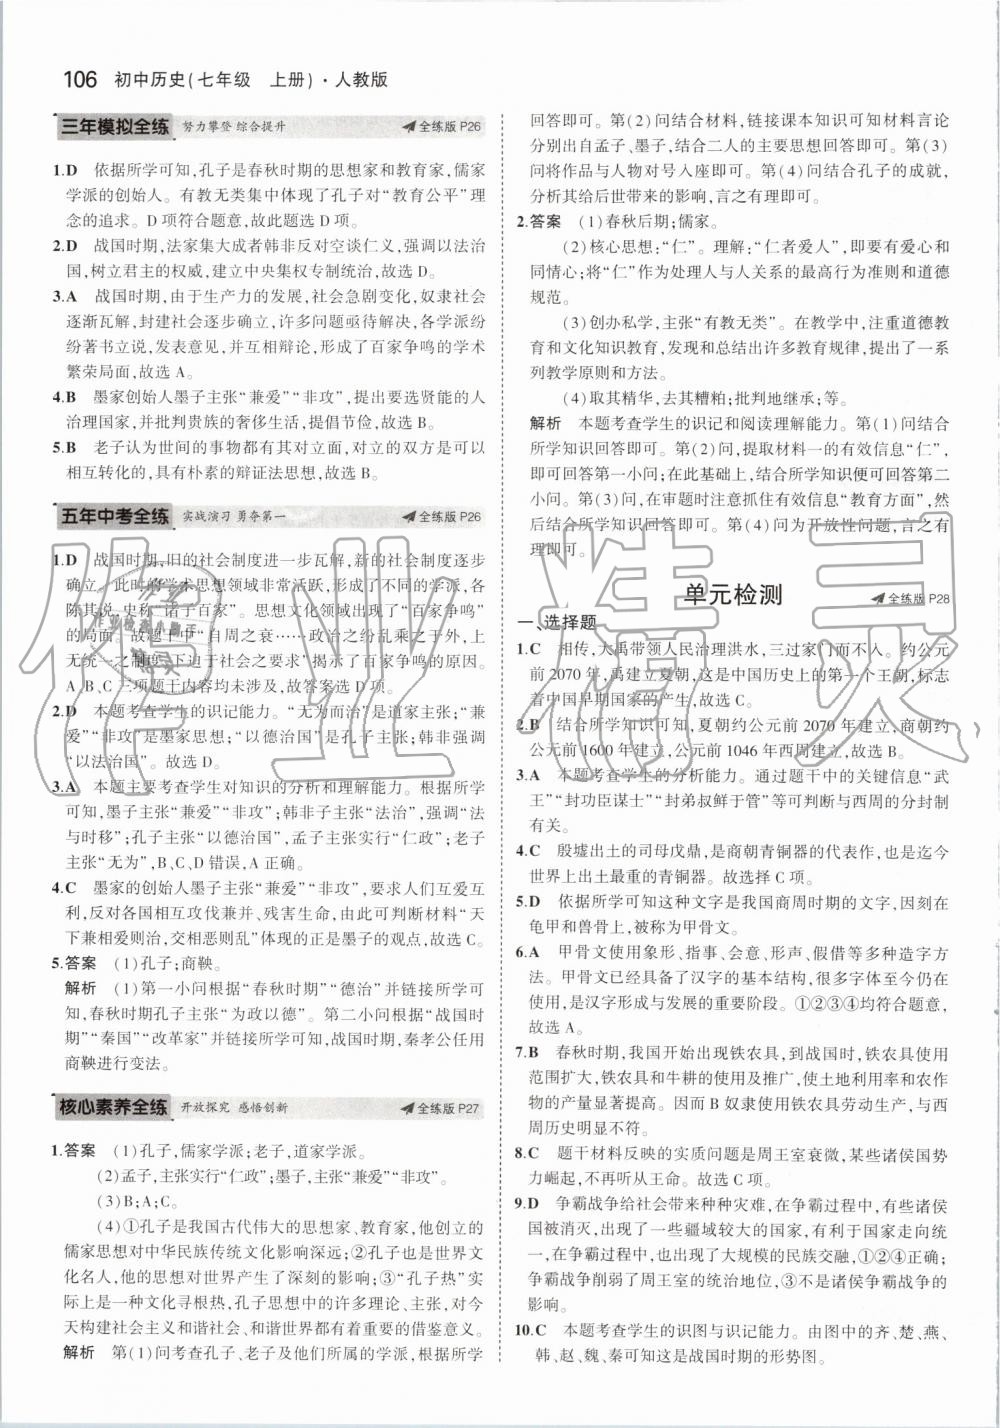 106 初中历史(七年级 上册)·人教版
三年模拟全练 努力攀登 综合提升 全练版 P26
1.D 依据所学可知,孔子是春秋时期的思想家和教育家,儒家
学派的创始人。有教无类集中体现了孔子对“教育公平”理
念的追求。D项符合题意,故此题选D项。
2.D 战国时期,法家集大成者韩非反对空谈仁义,强调以法治
国,树立君主的权威,建立中央集权专制统治,故选D。
3.A 战国时期,由于生产力的发展,社会急剧变化,奴隶社会
逐渐瓦解,封建社会逐步确立,许多问题亟待解决,各学派纷
纷著书立说,发表意见,并且相互辩论,形成了百家争鸣的学术
繁荣局面,故选A。
4.B 墨家创始人墨子主张“兼爱”“非攻”,要选贤能的人
治理国家,并批判贵族的奢侈生活,提倡节俭,故选B。
5.B 老子认为世间的事物都有其对立面,对立的双方是可以
相互转化的,具有朴素的辩证法思想,故选B。
五年中考全练 实战演习 勇夺第一 全练版 P26
1.D 战国时期,旧的社会制度进一步瓦解,新的社会制度逐步
确立。此时的学术思想领域非常活跃,形成了不同的学派,各
陈其说,史称“诸子百家”。思想文化领域出现了“百家争鸣”
的局面。故题干中“自周之衰……政治之纷乱乘之于外,上
无统一之制度,下迫于社会之要求”揭示了百家争鸣的原因。
A、B、C三项题干内容均未涉及,故答案选D。
2.D 本题考查学生的识记能力。“无为而治”是道家主张;“兼
爱”“非攻”是墨家思想;“以德治国”是儒家主张;韩非强调
“以法治国”。故选D。
3.A 本题主要考查学生对知识的分析和理解能力。根据所学
可知,墨子主张“兼爱”“非攻”;韩非子主张“法治”,强调“法
与时移”;孔子主张“以德治国”,孟子主张实行“仁政”;老子
主张“无为”,B、C、D错误,A正确。
4.C 墨家的创始人墨子主张“兼爱”“非攻”,要求人们互爱互
利,反对各国相互攻伐兼并、残害生命,由此可判断材料“天
下兼相爱则治,交相恶则乱”体现的正是墨子的观点,故选C。
5.答案 (1)孔子;商鞅。
解析 (1)第一小问根据“春秋时期”“德治”并链接所学可
知,春秋时期孔子主张“为政以德”。第二小问根据“战国时
期”“秦国”“改革家”并链接所学可知,战国时期,秦孝公任用
商鞅进行变法。
核心素养全练 开放探究 感悟创新 全练版 P27
1.答案 (1)孔子,儒家学派;老子,道家学派。
(2)孟子,主张实行“仁政”;墨子,主张“兼爱”“非攻”。
(3)B;A;C。
(4)①孔子是我国古代伟大的思想家、教育家,他创立的
儒家思想对中华民族传统文化影响深远;②孔子也是世界文
化名人,他的思想对世界产生了深刻的影响;③“孔子热”实
际上是一种文化寻根热,孔子思想中的许多理论、主张,对今
天构建社会主义和谐社会、和谐世界都有重要的借鉴意义。
解析 第(1)问考查孔子、老子及他们所属的学派,根据所学
回答即可。第(2)问结合材料,链接课本知识可知材料言论
分别出自孟子、墨子,结合二人的主要思想回答即可。第(3)
问将作品与人物对号入座即可。第(4)问结合孔子的成就,
分析其给后世带来的影响,言之有理即可。
2.答案 (1)春秋后期;儒家。
(2)核心思想:“仁”。理解:“仁者爱人”,即要有爱心和
同情心;将“仁”作为处理人与人关系的最高行为准则和道德
规范。
(3)创办私学,主张“有教无类”。在教学中,注重道德教
育和文化知识教育,发现和总结出许多教育规律,提出了一系
列教学原则和方法。
(4)取其精华,去其糟粕;批判地继承;等。
解析 本题考查学生的识记和阅读理解能力。第(1)问结合
所学知识回答即可。第(2)问,提取材料一的有效信息“仁”,
即可回答第一小问;在此基础上,结合所学知识便可回答第二
小问。第(3)问,在审题时注意抓住有效信息“教育方面”,然
后结合所学知识回答即可。第(4)问为开放性问题,言之有
理即可。
单元检测 全练版 P28
一、选择题
1.C 相传,大禹带领人民治理洪水,三过家门而不入。约公元
前2070年,禹建立夏朝,这是中国历史上的第一个王朝,标志
着中国早期国家的产生,故选C。
2.B 结合所学知识可知,夏朝约公元前2070年建立,商朝约
公元前1600年建立,公元前1046年西周建立,故选B。
3.A 本题考查学生的分析能力。通过题干中的关键信息“武
王”“封功臣谋士”“封弟叔鲜于管”等可判断与西周的分封制
有关。
4.C 殷墟出土的司母戊鼎,是商朝青铜器的代表作,也是迄今
世界上出土的最重的青铜器。故选择C项。
5.D 依据所学可知这种文字是我国商周时期的文字,刻写在
龟甲和兽骨上,被称为甲骨文。
6.A 甲骨文使用象形、指事、会意、形声、假借等多种造字方
法。甲骨文已经具备了汉字的基本结构,很多字体至今仍在
使用,是汉字形成与发展的重要阶段。①②③④均符合题意,
故选A。
7.B 春秋时期,我国开始出现铁农具,到战国时,铁农具使用
范围扩大,铁农具和牛耕的使用及推广,使土地利用率和农作
物的产量显著提高。因而B奴隶使用铁农具劳动生产,与西
周历史明显不符。
8.C 题干材料反映的实质问题是周王室衰微,某些诸侯国势
力崛起,不再听从王命。故选C项。
9.D 争霸战争给社会带来种种灾难,在争霸过程中,有些诸侯
国被消灭,出现了一些疆域较大的国家,有利于走向统
一,在争霸过程中,也出现了大规模的民族交融,①②④正确;
争霸战争削弱了周王室的统治地位,③不是诸侯争霸战争的
影响。
10.C 本题考查学生的识图与识记能力。由图中的齐、楚、燕、
韩、赵、魏、秦可知这是战国时期的形势图。